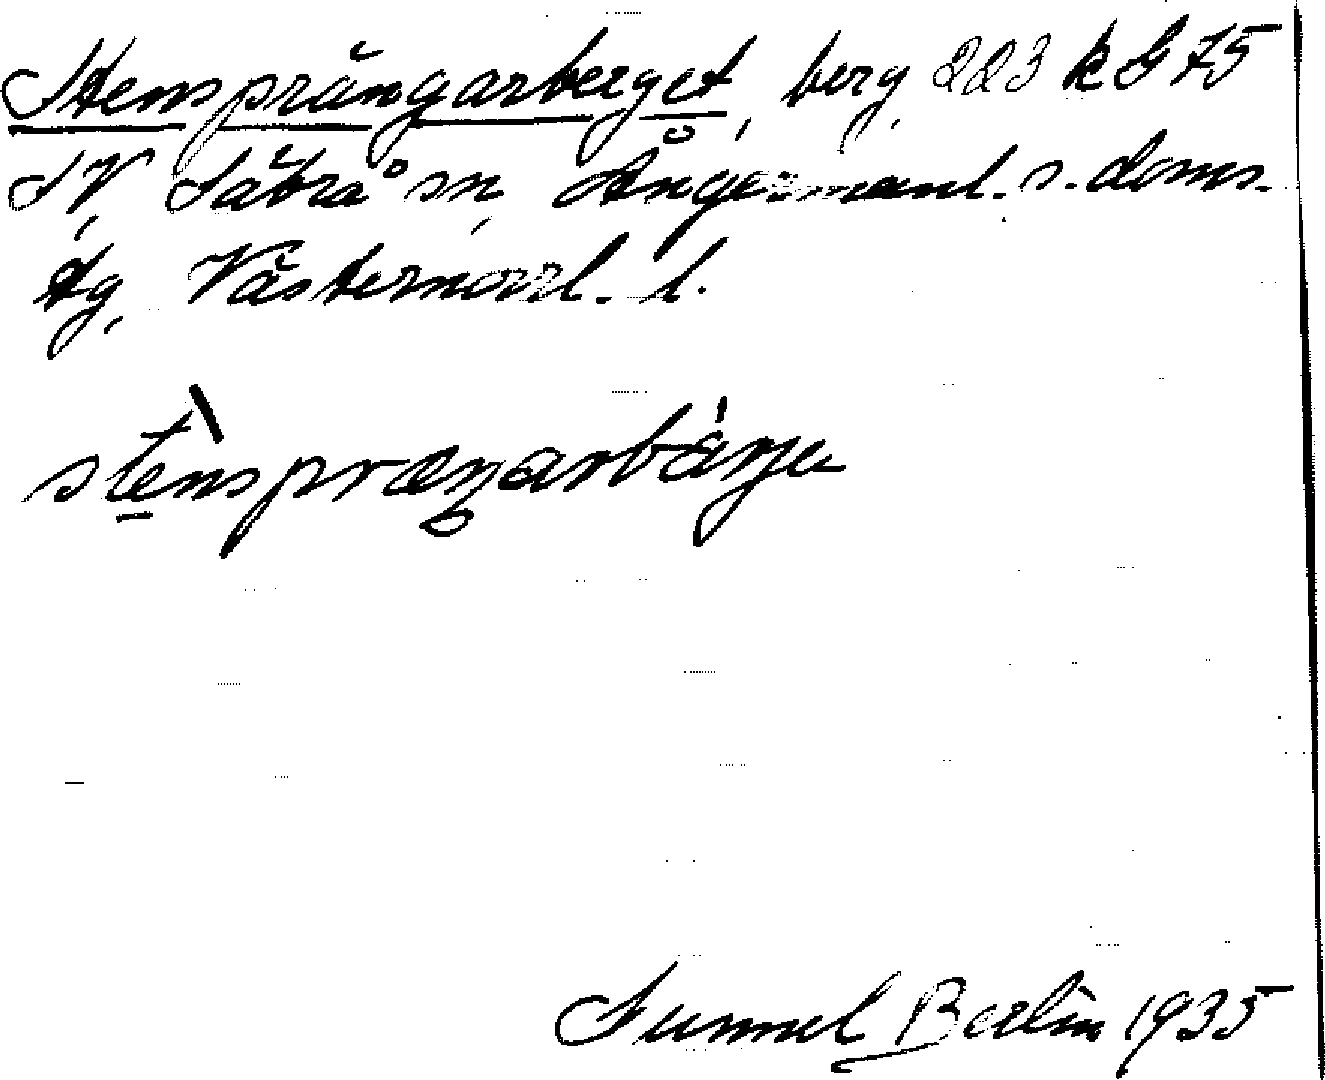 Stensprängarberget, berg, 223 k G 75
SV, Säbrå sn, Ångermanl. s. doms.
tg, Västernorrl. l.
stènspræŋarbárje
Sunnel Berlin 1935